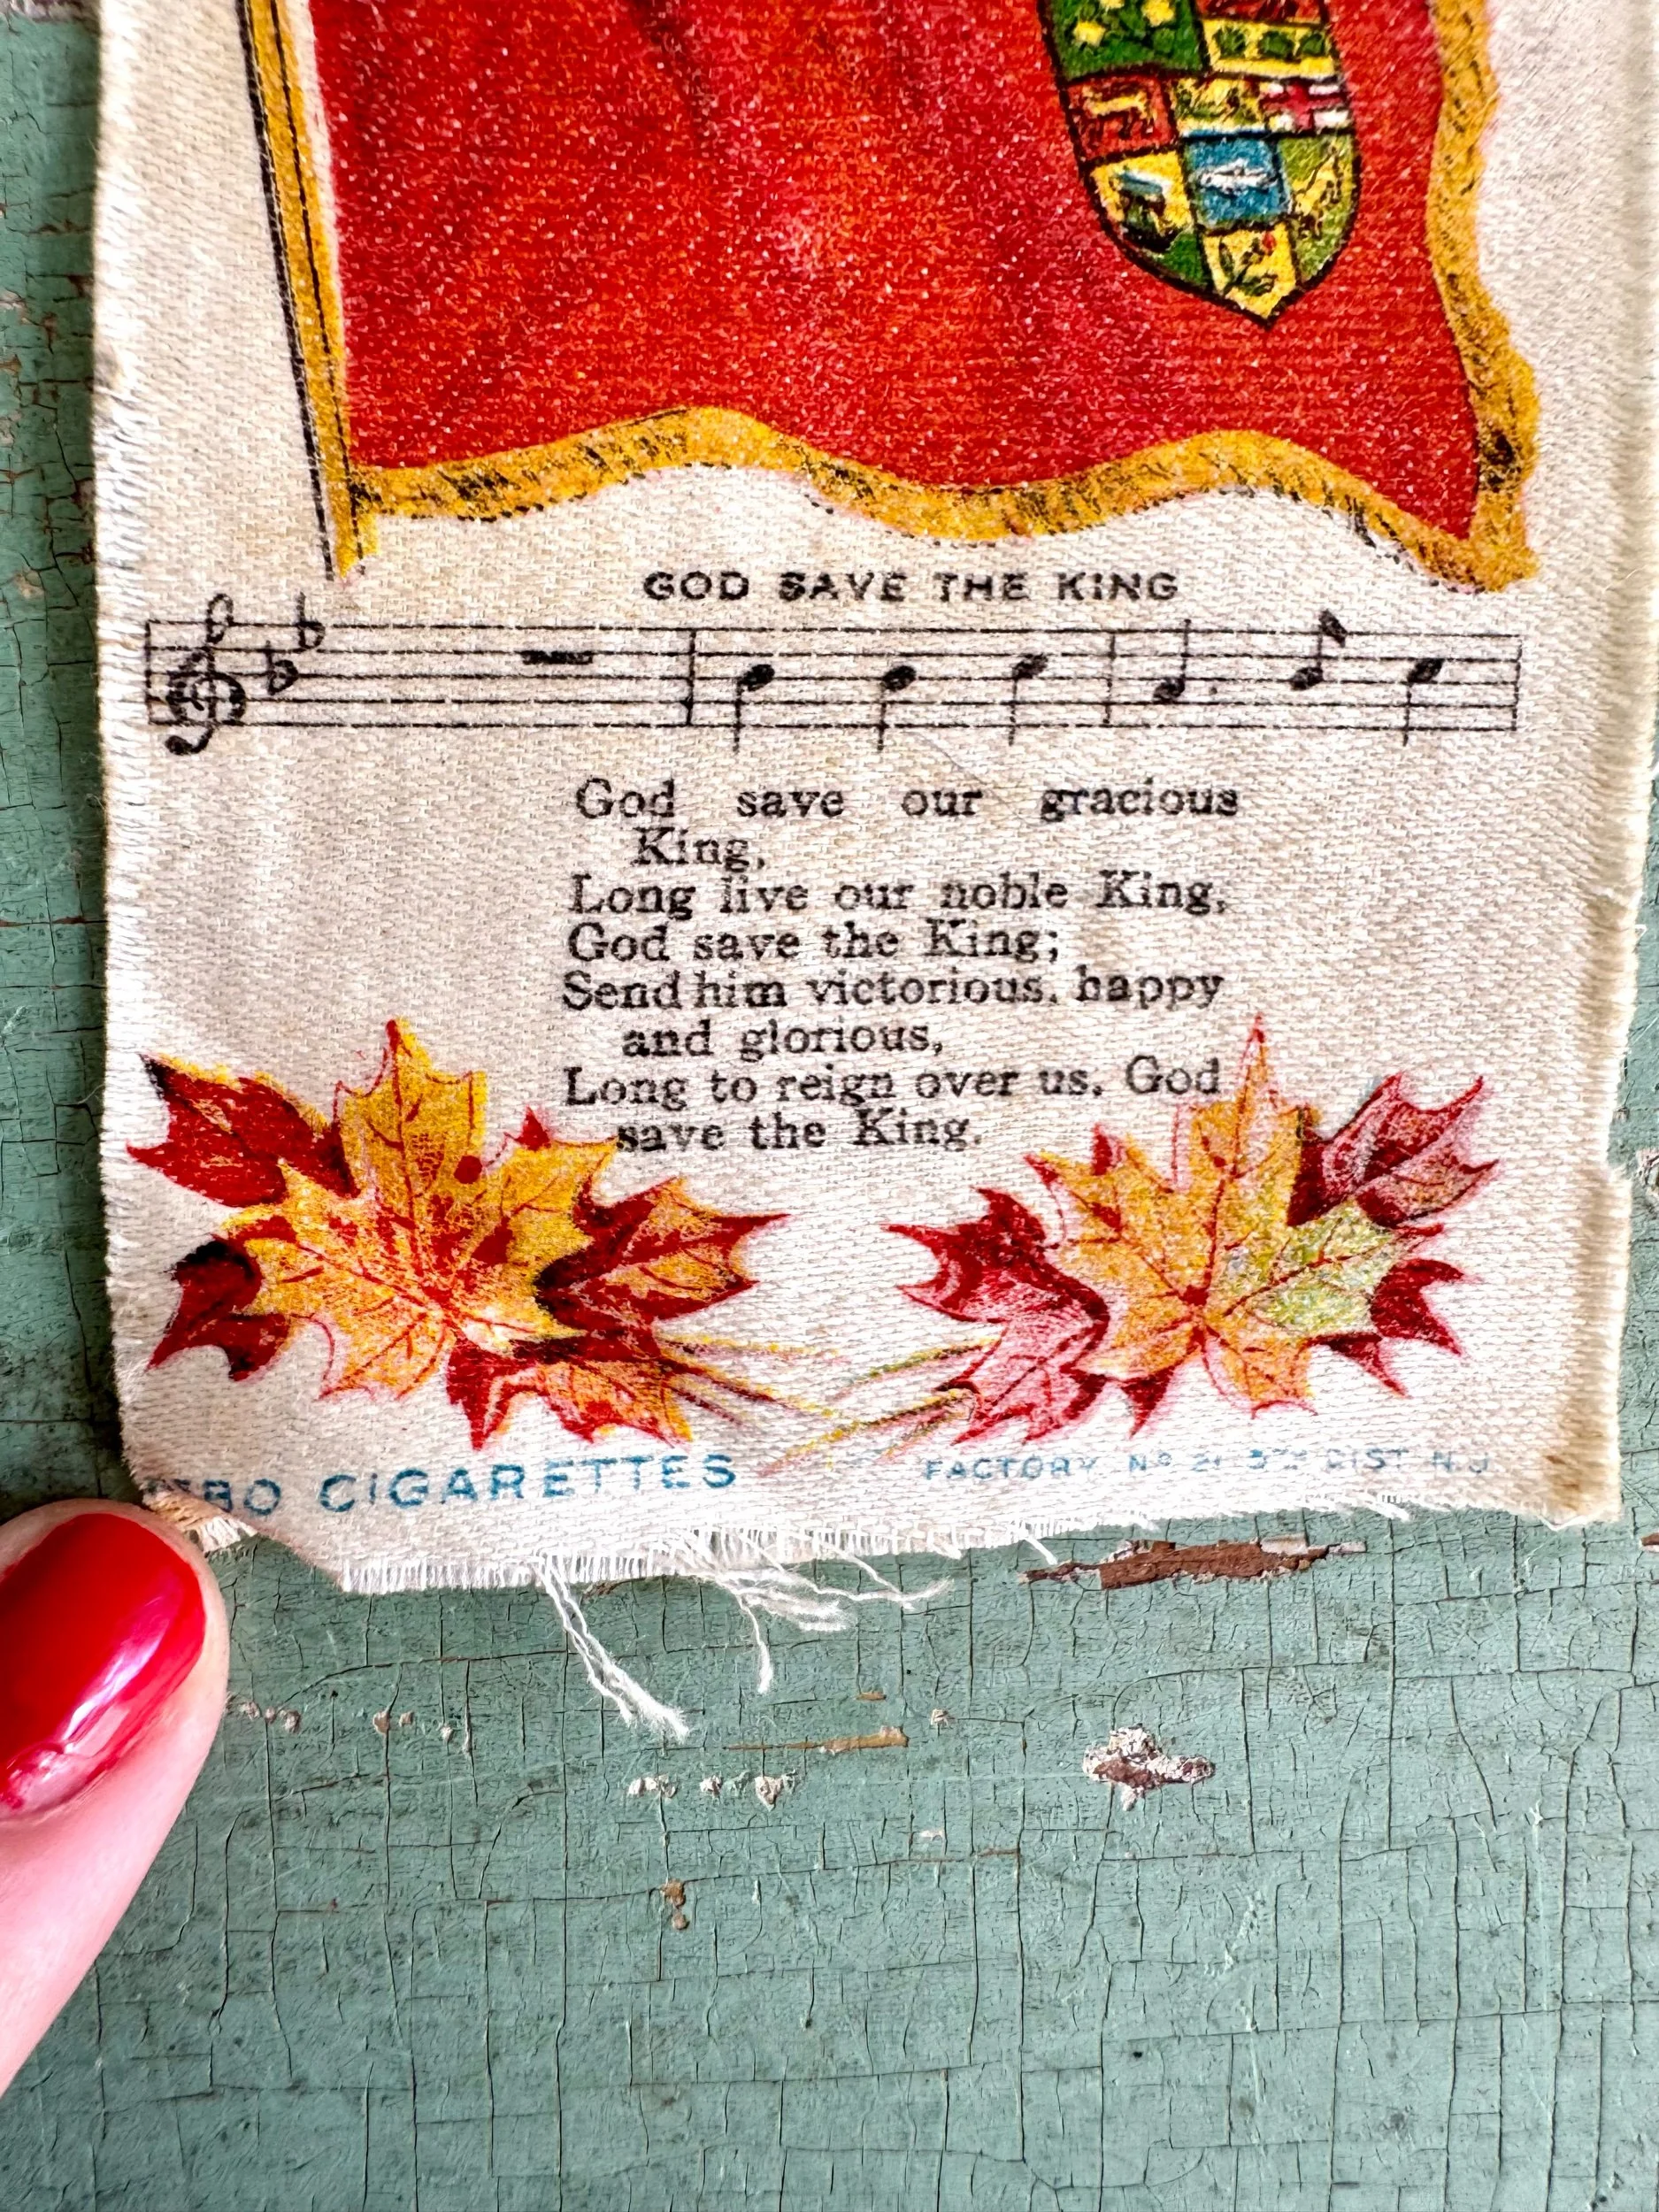 GOD SAVE THE KING
God save our gracious
King,
Long live our noble King,
God save the King;
Send him victorious, happy
and glorious,
Long to reign over us, God
save the King.
CIGARETTES
FACTORY Nº 21 5TH DIST. N.J.